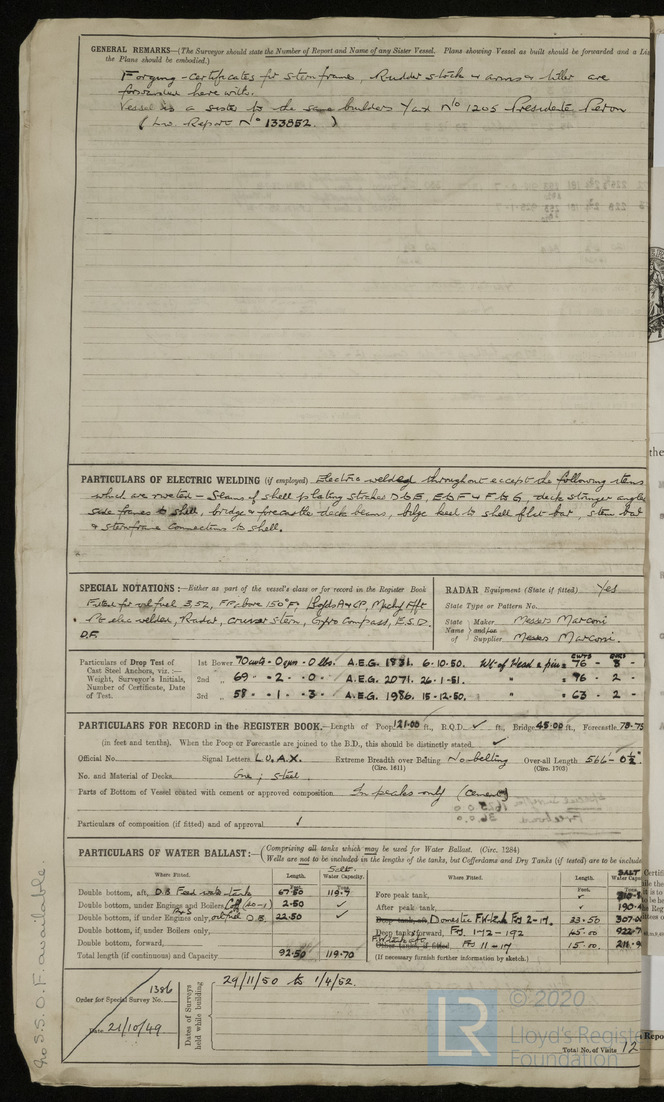 GENERAL REMARKS—(The Surveyor should state the Number of Report and Name of any Sister Vessel. Plans showing Vessel as built should be forwarded and a Lis
the Plans should be embodied.)
Forging certificates for sternframe, Rudder stock & arms & tiller are
forwarded herewith.
Vessel is a sister to the same builders Yard No 1205 Presidente Peron
(Lon. Report No 133852.)
PARTICULARS OF ELECTRIC WELDING (if employed) Electric welded throughout except the following items
which are riveted – Seams of shell plating strakes D to E, E to F & F to G, deck stringer angles
side frames to shell, bridge & forecastle deck beams, bilge keel to shell flat bar, stem bar
& sternframe connections to shell.
SPECIAL NOTATIONS:—Either as part of the vessel's class or for record in the Register Book
Fitted for oil fuel 3,52, F.P. above 150°F, Lloyds A & CP, Machy Aft
Pt elec welded, Radar, Cruiser Stern, Gyro Compass, E.S.D.
D.F.
RADAR Equipment (State if fitted) Yes
State Type or Pattern No.
State Name of Maker Messrs Marconi
and/or Supplier Messrs Marconi.
Particulars of Drop Test of
Cast Steel Anchors, viz.:—
Weight, Surveyor's Initials,
Number of Certificate, Date
of Test.
1st Bower 70 cwts - 0 qrs - 0 lbs. A.E.G. 1831. 6-10-50. Wt. of Head & pins = 76 - 3 -
2nd „ 69 - 2 - 0 A.E.G. 2071. 26-1-51. „ = 76 - 2 -
3rd „ 58 - 1 - 3 A.E.G. 1986. 15-12-50. „ = 63 - 2 -
PARTICULARS FOR RECORD in the REGISTER BOOK.—Length of Poop 121.00 ft., R.Q.D. ✓ ft., Bridge 45.00 ft., Forecastle 78.75
(in feet and tenths). When the Poop or Forecastle are joined to the B.D., this should be distinctly stated. ✓
Official No. Signal Letters L.U.A.X. Extreme Breadth over Belting No belting Over-all Length 566'- 0½"
(Circ. 1611) (Circ. 1703)
No. and Material of Decks One; Steel.
Parts of Bottom of Vessel coated with cement or approved composition In peaks only (cement)
Particulars of composition (if fitted) and of approval ✓
PARTICULARS OF WATER BALLAST:—(Comprising all tanks which may be used for Water Ballast. (Circ. 1284)
Wells are not to be included in the lengths of the tanks, but Cofferdams and Dry Tanks (if tested) are to be include
Where Fitted. Length. Water Capacity. SALT
Double bottom, aft, D.B. Feed water tanks 67.50 119.7
Double bottom, under Engines and Boilers, 2.50 ✓
Double bottom, if under Engines only, oil fuel D.B. 22.50 ✓
Double bottom, if under Boilers only,
Double bottom, forward,
Total length (if continuous) and Capacity 92.50 119.70
Where Fitted. Length. Water Capa SALT
Feet.
Fore peak tank, ✓
After peak tank, ✓ 190.
Deep tank, aft, Domestic F.W. tank Frs 2-14. 23.50 307.
Deep tank, forward, Frs. 172-192 45.00 922.7
Other tanks, if fitted Frs 11-17 15.00. 211.9
(If necessary furnish further information by sketch.)
Order for Special Survey No. 1386
Date 21/10/49
Dates of Surveys held while building
29/11/50 to 1/4/52.
Total No. of Visits 12
No S.S.O.F. available.
LR
© 2020
Lloyd's Registe
Foundation